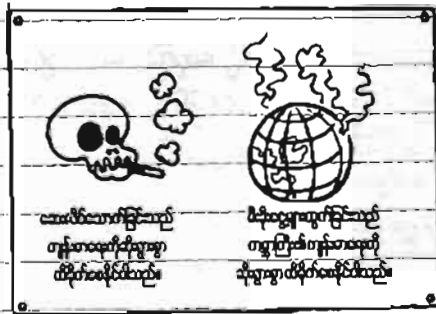 ဆေးလိပ်သောက်ခြင်းသည်
ကျန်းမာရေးကိုဆိုးရွားစွာ
ထိခိုက်စေနိုင်ပါသည်။
မီးခိုးငွေ့များထွက်ခြင်းသည်
ကမ္ဘာကြီး၏ကျန်းမာရေးကို
ဆိုးရွားစွာထိခိုက်စေနိုင်ပါသည်။